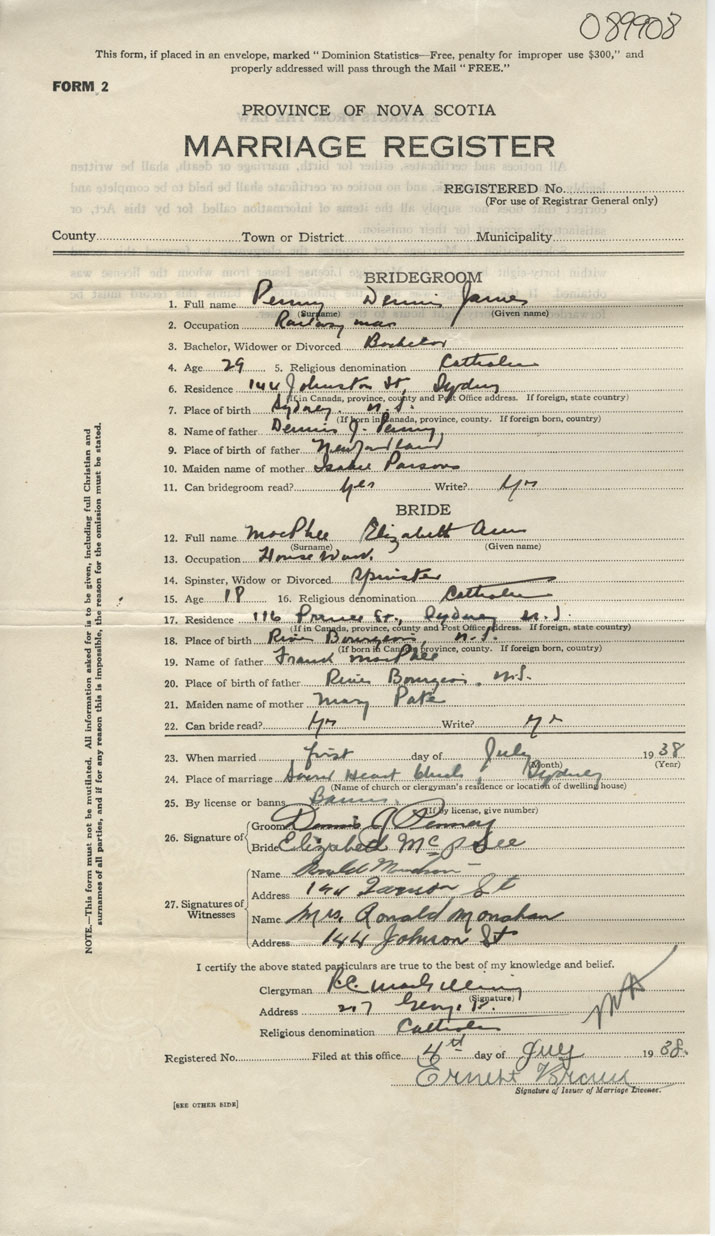 089908
This form, if placed in an envelope, marked "Dominion Statistics—Free, penalty for improper use $300," and
properly addressed will pass through the Mail "FREE."
FORM 2
PROVINCE OF NOVA SCOTIA
MARRIAGE REGISTER
REGISTERED No.
(For use of Registrar General only)
County Town or District Municipality
BRIDEGROOM
1. Full name Penny Dennis James
(Surname) (Given name)
2. Occupation Railway man
3. Bachelor, Widower or Divorced Bachelor
4. Age 29 5. Religious denomination Catholic
6. Residence 144 Johnston St, Sydney
(If in Canada, province, county and Post Office address. If foreign, state country)
7. Place of birth Sydney N.S.
(If born in Canada, province, county. If foreign born, country)
8. Name of father Dennis J. Penny
9. Place of birth of father Newfoundland
10. Maiden name of mother Parsons
11. Can bridegroom read? Yes Write? Yes
BRIDE
12. Full name MacPhee Elizabeth Ann
(Surname) (Given name)
13. Occupation House Work
14. Spinster, Widow or Divorced Spinster
15. Age 18 16. Religious denomination Catholic
17. Residence 116 Prince St., Sydney N.S.
(If in Canada, province, county and Post Office address. If foreign, state country)
18. Place of birth River Bourgeois, N.S.
(If born in Canada, province, county. If foreign born, country)
19. Name of father Frank MacPhee
20. Place of birth of father River Bourgeois, N.S.
21. Maiden name of mother Mary Pate
22. Can bride read? Yes Write? Yes
23. When married first day of July 1938
(Month) (Year)
24. Place of marriage Sacred Heart Church, Sydney
(Name of church or clergyman's residence or location of dwelling house)
25. By license or banns Banns
(If by license, give number)
26. Signature of
Groom Dennis J Penney
Bride Elizabeth McPhee
27. Signatures of Witnesses
Name Ronald
Address 144 St
Name Mrs. Ronald Monahan
Address 144 Johnson St
I certify the above stated particulars are true to the best of my knowledge and belief.
Clergyman R.C.
(Signature)
Address 207 George St.
Religious denomination Catholic
Registered No. Filed at this office 4th day of July 1938.
Ernest
Signature of Issuer of Marriage License.
[SEE OTHER SIDE]
NOTE.—This form must not be mutilated. All information asked for is to be given, including full Christian and
surnames of all parties, and if for any reason this is impossible, the reason for the omission must be stated.